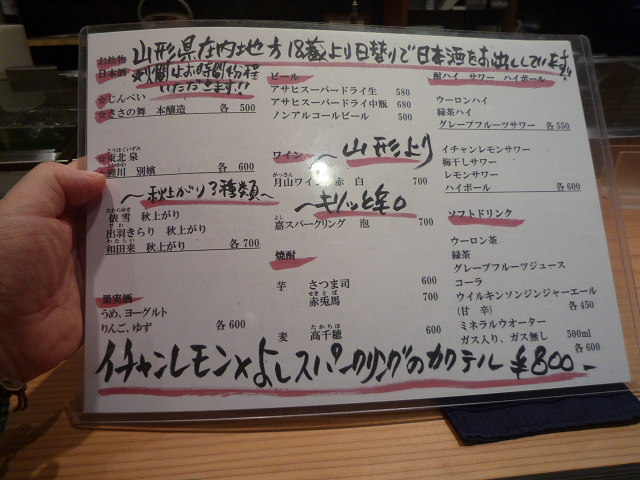 お飲物
山形県庄内地方18蔵より日替りで日本酒をお出ししています!!
日本酒
お燗はお時間10分程
いただきます!!
☆じんぺい
☆ささの舞 本醸造 各 500
とうほくいずみ
☆東北泉
鯉川 別嬪 各 600
〜秋上がり3種類〜
たわらゆき
俵雪 秋上がり
でわ
出羽きらり 秋上がり
わたらい
和田来 秋上がり 各700
果実酒
うめ、ヨーグルト
りんご、ゆず 各 600
ビール
アサヒスーパードライ生 580
アサヒスーパードライ中瓶 680
ノンアルコールビール 500
ワイン 〜山形より
がっさん
月山ワイン 赤 白 700
〜キリッと辛口
よし
嘉スパークリング 泡 700
焼酎
芋 さつま司 600
せきとば
赤兎馬 700
たかちほ
麦 高千穂 600
酎ハイ サワー ハイボール
ウーロンハイ
緑茶ハイ
グレープフルーツサワー 各550
イチャンレモンサワー
梅干しサワー
レモンサワー
ハイボール 各600
ソフトドリンク
ウーロン茶
緑茶
グレープフルーツジュース
コーラ
ウイルキンソンジンジャーエール
(甘 辛) 各 450
ミネラルウオーター
ガス入り、ガス無し 500ml
各 600
イチャンレモン×よしスパークリングのカクテル ¥800-